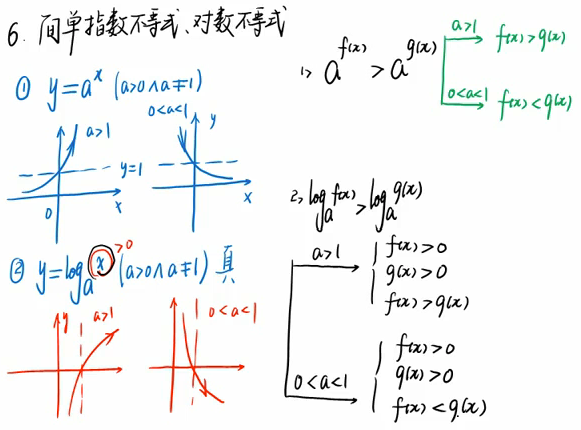 6. 简单指数不等式、对数不等式
① y=aˣ (a>0∧a≠1)
a>1
y=1
0
x
0<a<1
y
x
② y=logₐx (a>0∧a≠1) 真
>0
y
a>1
0<a<1
1> a^f(x) > a^g(x)
a>1 f(x)>g(x)
0<a<1 f(x)<g(x)
2> logₐf(x)>logₐg(x)
a>1
f(x)>0
g(x)>0
f(x)>g(x)
0<a<1
f(x)>0
g(x)>0
f(x)<g(x)